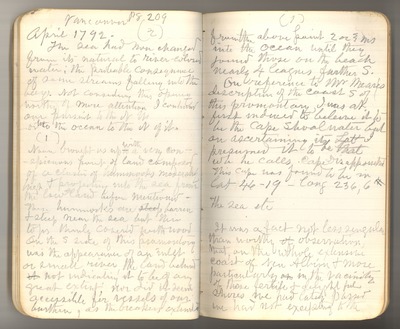 Vancouver P8, 209
April 1792. (2)
The sea had now changed
from its natural to river coloured
water; the probable consequence
of some streams falling into the
Not considering this opening
worthy of more attention I continued
our pursuit to the N W
to the ocean to the N of the
Noon brought us up with a very con-
spicuous point of land composed
of a cluster of hummocks moderately
high & projecting into the sea from
the low land before mentioned
These hummocks are barren
& steep near the sea but their
tops thinly covered with wood
On the S side of this promontory
was the appearance of an inlet
or small river the land
not indicating it to be of any
great extent; nor did it seem
accessible for vessels of our
burthen, as the breakers extended
(3)
from the above point 2 or 3 ms
into the ocean until they
joined those on the beach
nearly 4 leagues further S.
On reference to Mr Meares's
description of the coast S of
this promontory I was at
first induced to believe it to
be the Cape Shoalwater, but
on ascertaining its Latd I
presumed it to be that
wh he calls Cape Disappointment
This Cape was found to be in
Lat 46-19 - long 236, 6
The sea etc
It was a fact not less singular
than worthy of observation,
that, on the whole extensive
coast of New Albion & more
particularly in the vicinity
of those fertile & delightful
shores we had lately passed
we had not excepting to the